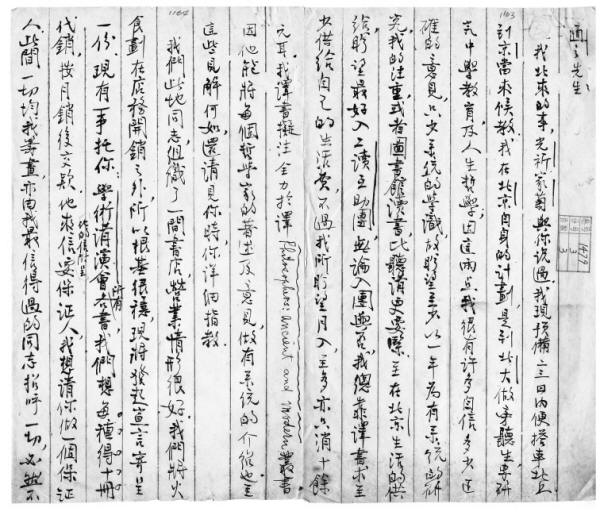 1163
適之先生：
我北來的事，先 家菊與你說過。我現預備二三日內便搭車北上
到京當來候教。我在北京自身的計劃，是到北大做旁聽生，要研
究中學教育及人生哲學，因這兩點，我很有許多自信多少正
確的意見，只少系統的學識，故盼望至少以一年為有系統的研
究，我的注重或者圖書館讀書，比聽講更要緊，至在北京生活的供
給，盼望最好入工讀互助團，無論入團與否，我總靠譯書求至
少供給自己的生活費，不過我所盼望月入，至多亦只消十餘
1164
元耳。我譯書擬注全力於譯 Philosophers: ancient and modern 叢書
因他能將每個哲學家的著述及意見，做有系統的介紹也。至
這些見解何如，還請見你時，你詳細指教。
我們此地同志組織了一間書店，營業情形很好。我們將火
食劃在店務開銷之外，所以根基很穩，現將發起宣言寄呈
一份。現有一事托你：學術講演會所有各書，我們想每種得十冊
代銷，按月銷後交款，他來信要保證人，我想請你做一個保證
人。此間一切，均我籌畫，亦由我最信得過的同志招呼一切，必然不